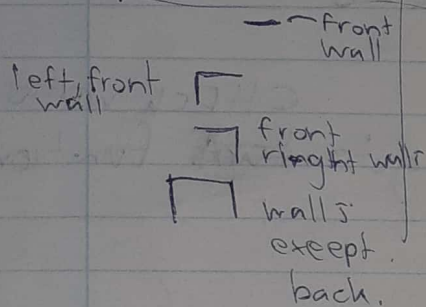 front
wall
left, front
wall
front
ringht walls
walls
except.
back.